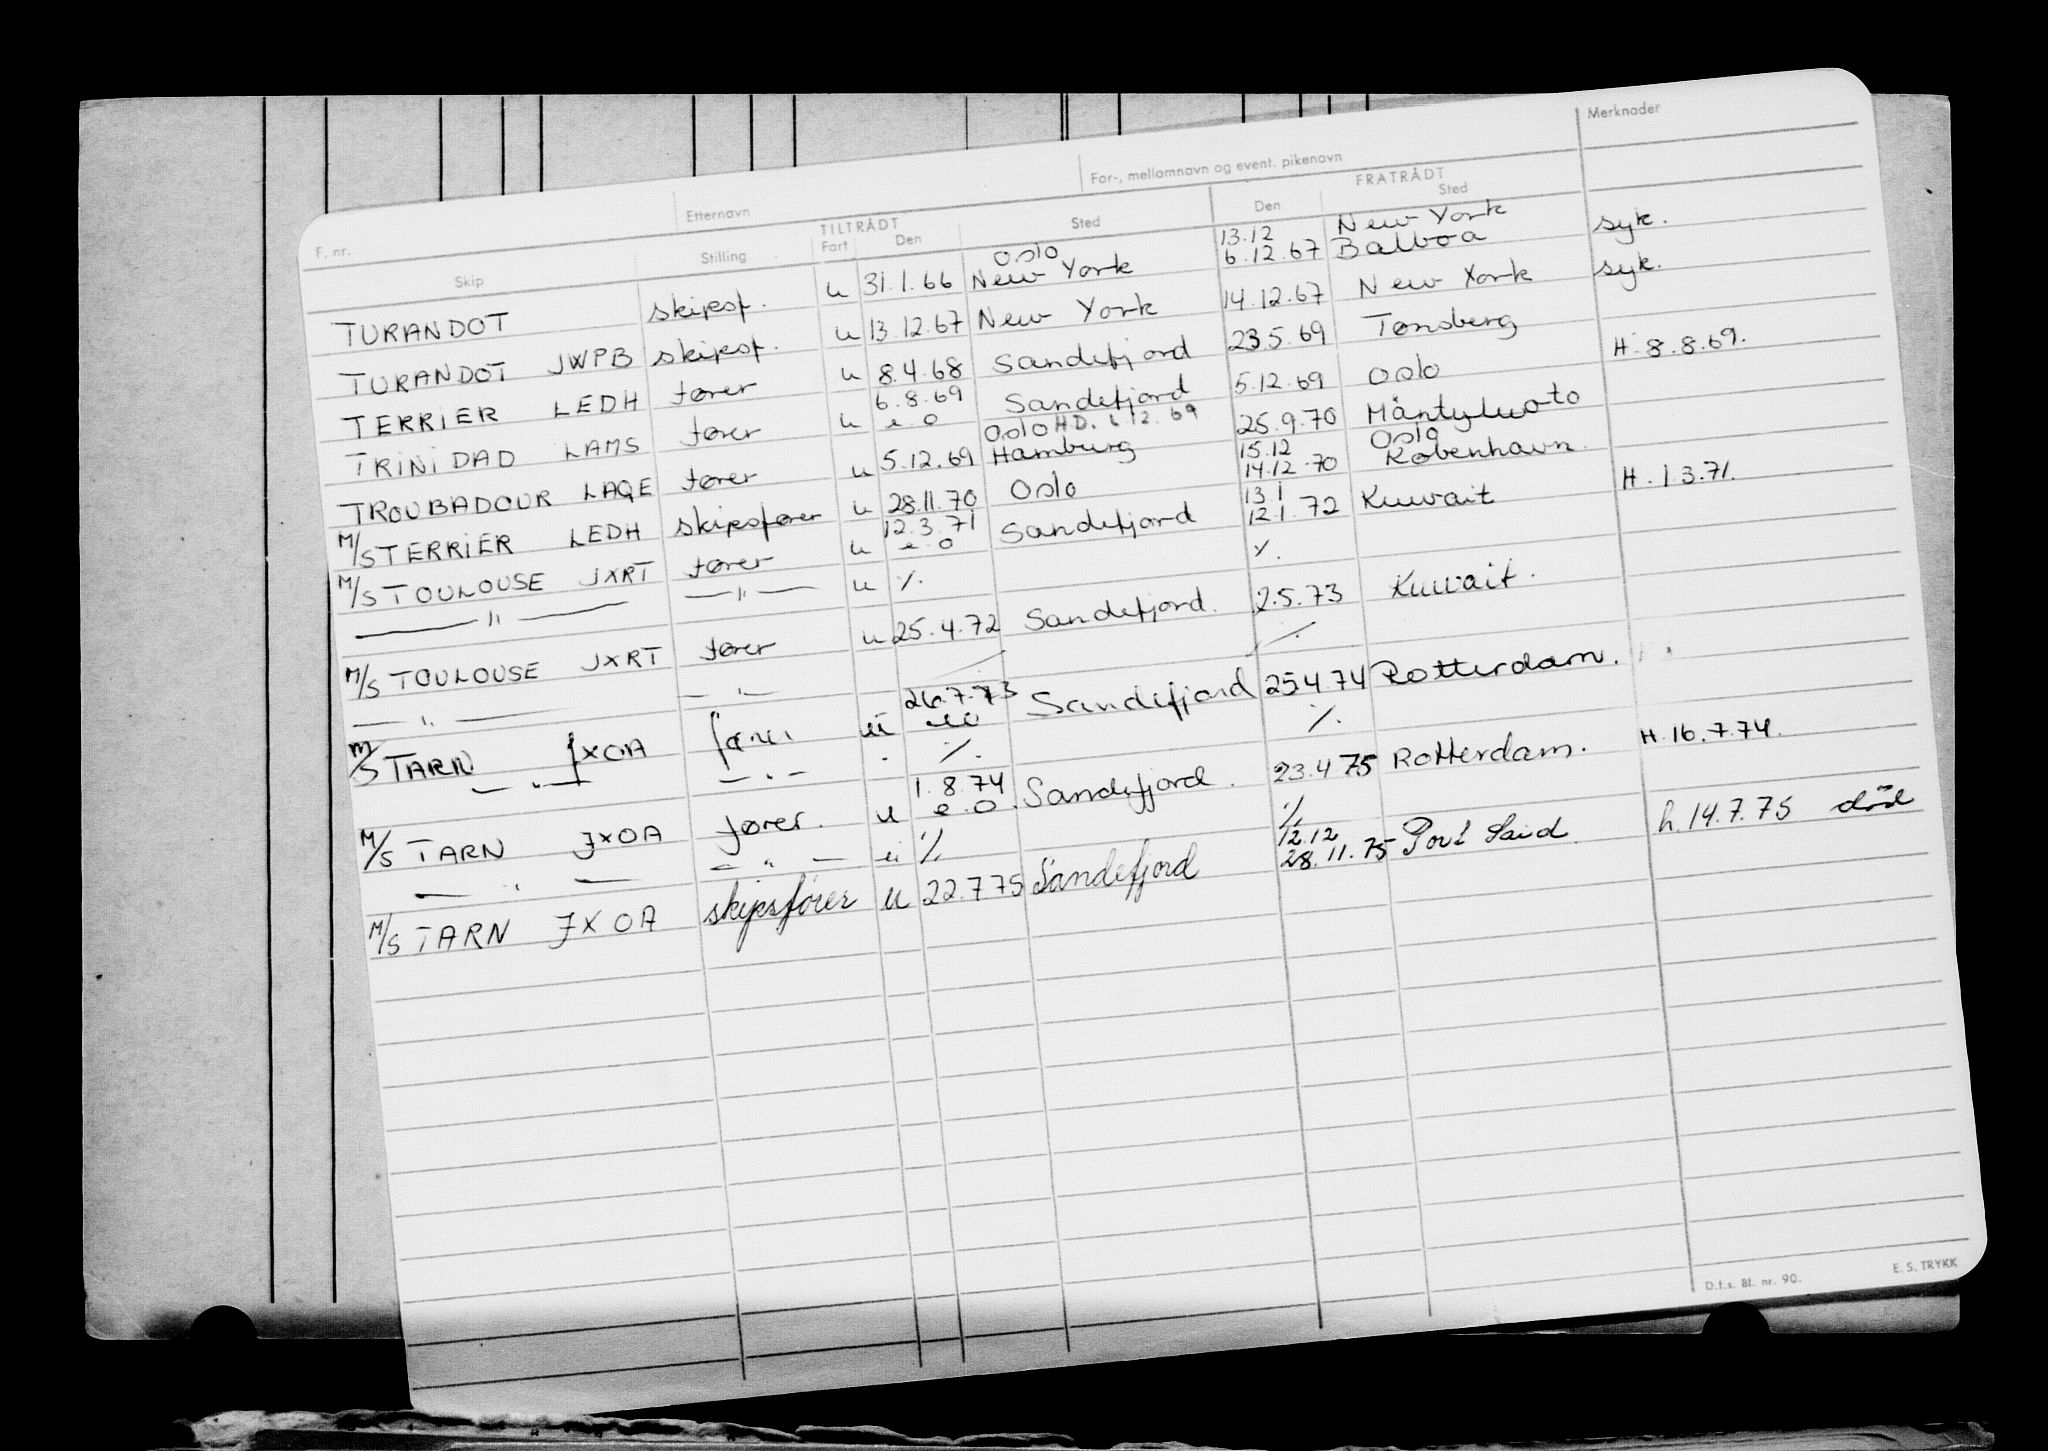 Merknader
F. nr. Etternavn For-, mellomnavn og event. pikenavn
TILTRÅDT FRATRÅDT
Skip Stilling Fart Den Sted Den Sted
Oslo 13.12 New York
TURANDOT skipsf. u 31.1.66 New York 6.12.67 Balboa syk.
TURANDOT JWPB skipsf. u 13.12.67 New York 14.12.67 New York syk.
TERRIER LEDH fører u 8.4.68 Sandefjord 23.5.69 Tønsberg
6.8.69
TRINIDAD LAMS fører u e.o Sandefjord 5.12.69 Oslo H. 8.8.69.
Oslo H.D. 12.69
TROUBADOUR LAQE fører u 5.12.69 Hamburg 25.9.70 Mäntyluoto
15.12 Oslo
M/S TERRIER LEDH skipsfører u 28.11.70 Oslo 14.12.70 København.
12.3.71 13.1
M/S TOULOUSE JXRT fører u e.o Sandefjord 12.1.72 Kuwait H. 1.3.71.
— " — — " — u ·/. ·/.
M/S TOULOUSE JXRT fører u 25.4.72 Sandefjord. 2.5.73 Kuwait.
— " — — " — ·/.
26.7.73
M/S TARN JXOA fører u eo Sandefjord 25.4.74 Rotterdam.
— " — — " — ·/. ·/.
1.8.74
M/S TARN JXOA fører. u e.o. Sandefjord. 23.4.75 Rotterdam. H. 16.7.74.
— " — — " — u ·/. ·/.
12.12
M/S TARN JXOA skipsfører u 22.7.75 Sandefjord 28.11.75 Port Said h. 14.7.75 død
D.f.s. Bl. nr. 90. E. S. TRYKK